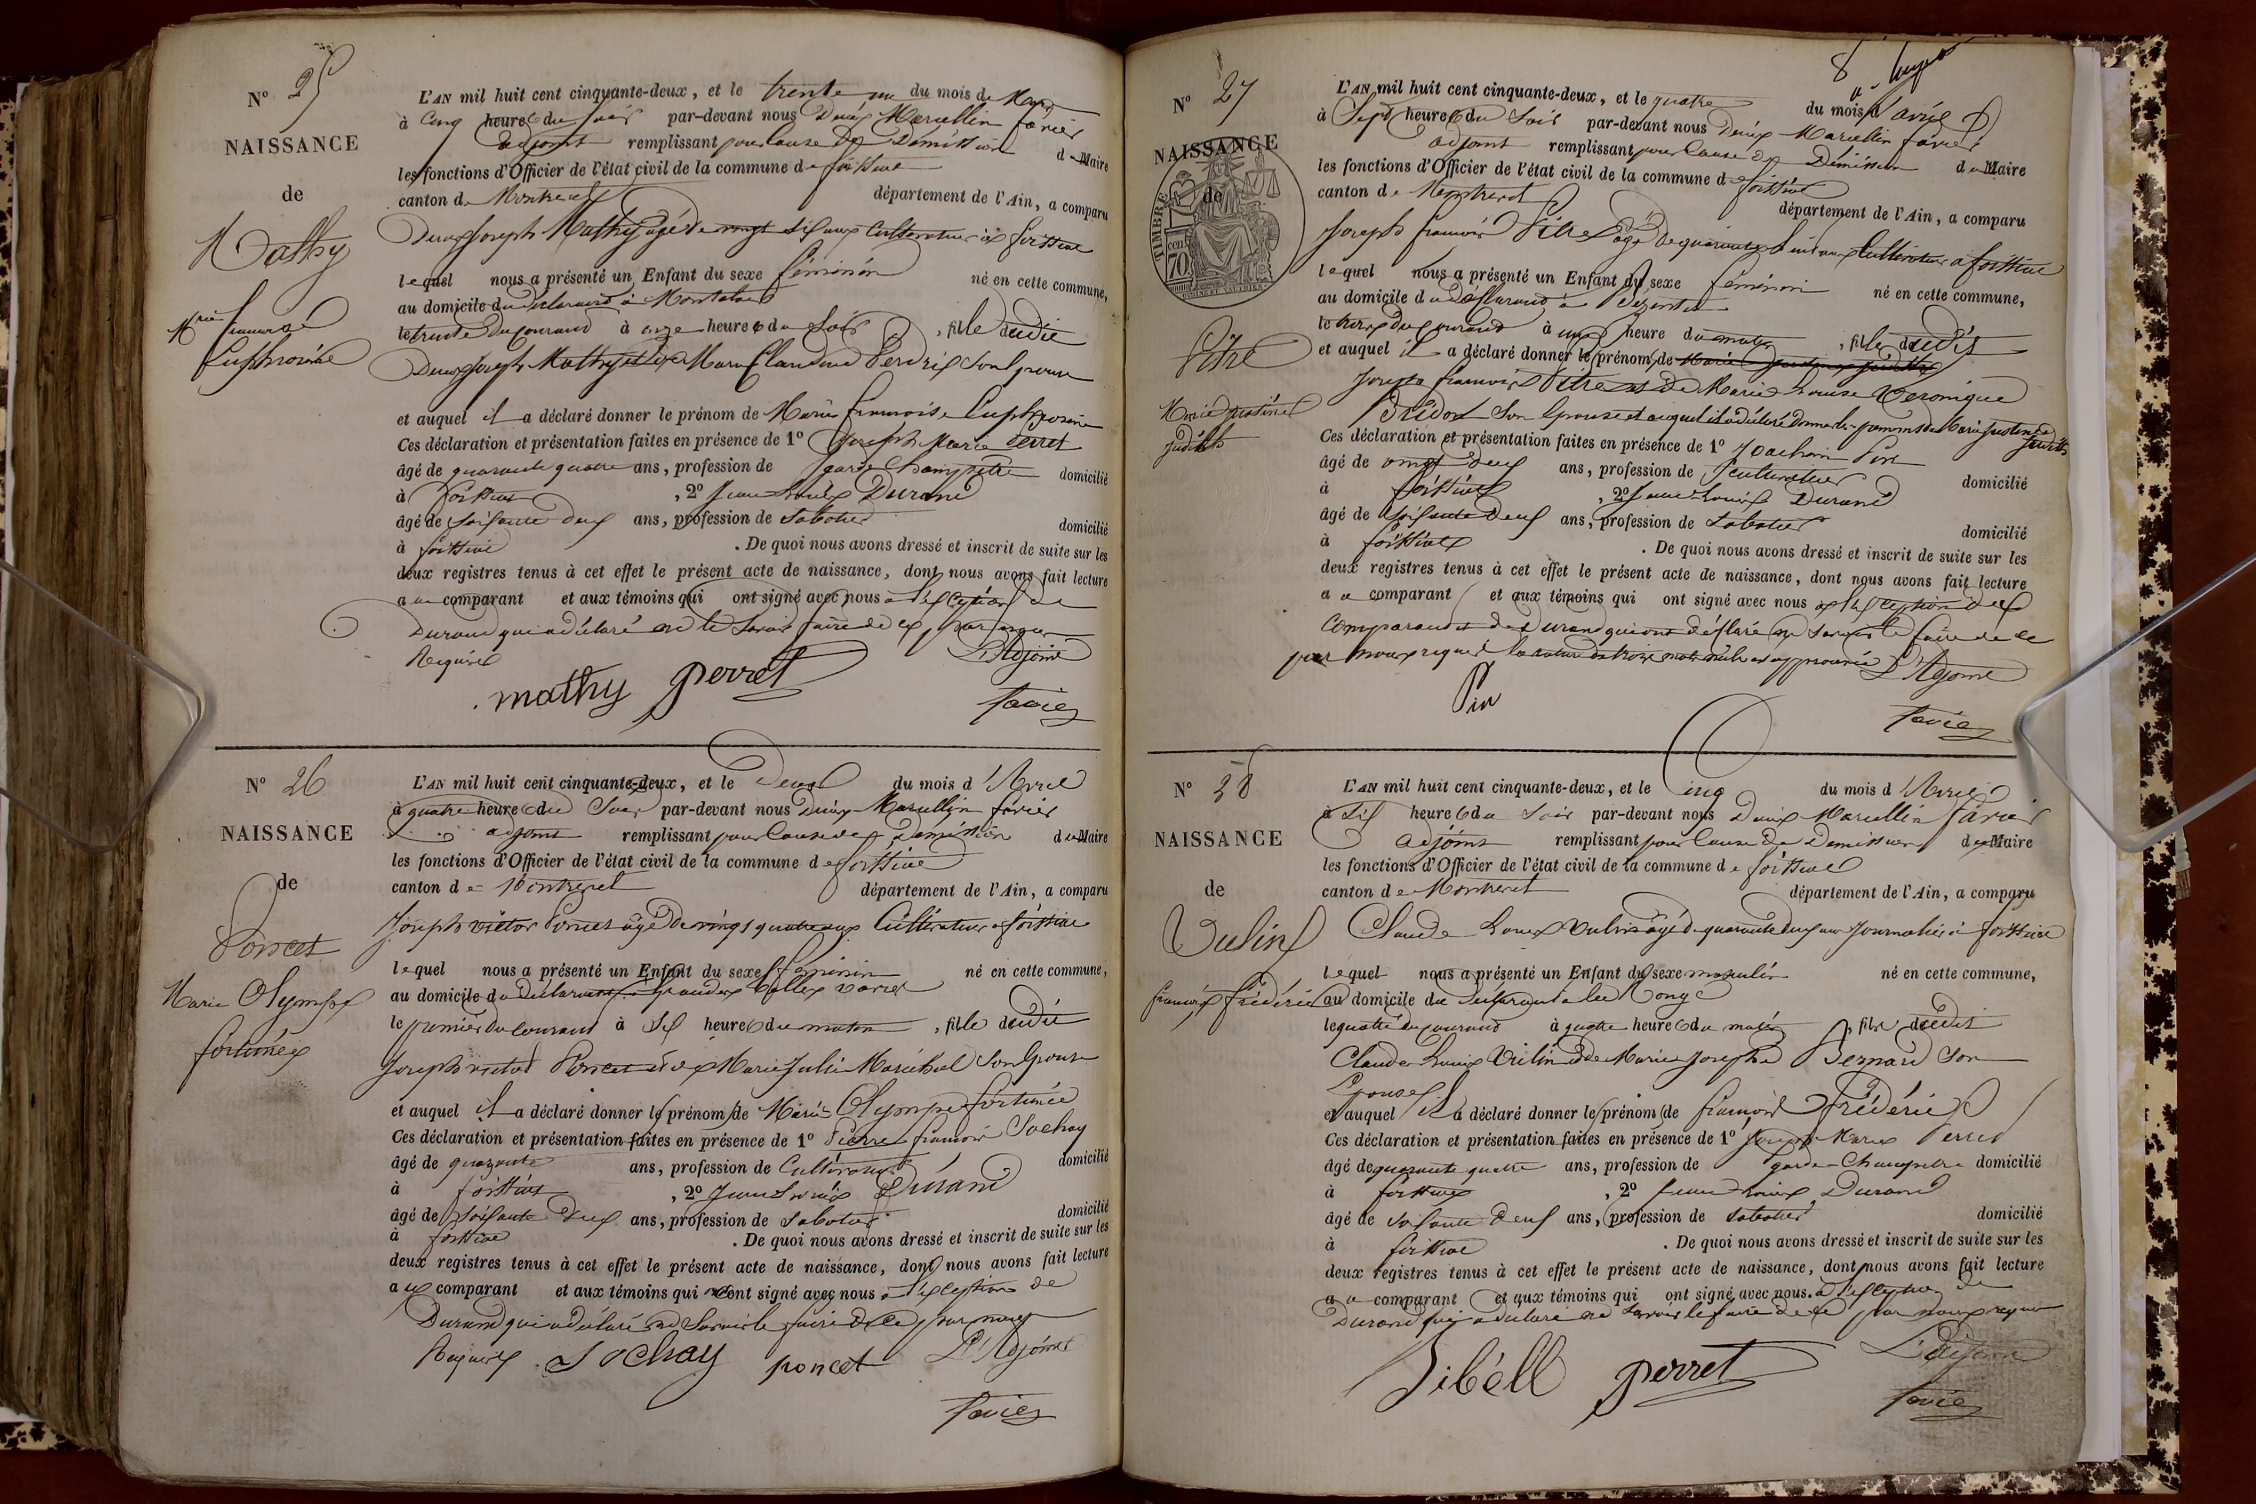 Nº 25
NAISSANCE
de
Mathy
Mrie francoise
Euphrosine
L'AN mil huit cent cinquante-deux, et le trente un du mois de Mars
à Cinq heures du soir par-devant nous Marcellin favier
adjoint remplissant pour Cause de Démission du Maire
les fonctions d'Officier de l'état civil de la commune de
canton de Montrevel département de l'Ain, a comparu
Joseph Mathy agé de vingt six ans Cultivateur à
lequel nous a présenté un Enfant du sexe féminin né en cette commune,
au domicile du déclarant à
le trente du courant à onze heures du Soir, fille dudit
Joseph Mathy et de Marie Claudine Perdrix son épouse
et auquel il a déclaré donner le prénom de Marie francoise Euphrosine
Ces déclaration et présentation faites en présence de 1º Joseph Marie Perret
âgé de quarante quatre ans, profession de garde Champetre domicilié
à , 2º Jean Louis Durand
âgé de soixante deux ans, profession de Sabotier domicilié
à . De quoi nous avons dressé et inscrit de suite sur les
deux registres tenus à cet effet le présent acte de naissance, dont nous avons fait lecture
au comparant et aux témoins qui ont signé avec nous à l'exception de
Durand qui a déclaré ne le Savoir faire de ce par nous
Requis L'Adjoint
mathy perret favier
Nº 26
NAISSANCE
de
Poncet
Marie Olympe
fortunée
L'AN mil huit cent cinquante-deux, et le Deux du mois d'Avril
à quatre heures du Soir par-devant nous Marcellin favier
adjoint remplissant pour Cause de Démission du Maire
les fonctions d'Officier de l'état civil de la commune de
canton de Montrevel département de l'Ain, a comparu
Joseph victor Poncet agé de vingt quatre ans Cultivateur à
lequel nous a présenté un Enfant du sexe féminin né en cette commune,
au domicile du déclarant à
le premier du courant à Six heures du matin, fille dudit
Joseph victor Poncet et de Marie Julie Maréchal Son Epouse
et auquel il a déclaré donner les prénoms de Marie Olympe fortunée
Ces déclaration et présentation faites en présence de 1º Pierre francois Sochay
âgé de quarante ans, profession de Cultivateur domicilié
à , 2º Jean Louis Durand
âgé de soixante deux ans, profession de Sabotier domicilié
à . De quoi nous avons dressé et inscrit de suite sur les
deux registres tenus à cet effet le présent acte de naissance, dont nous avons fait lecture
aux comparant et aux témoins qui ont signé avec nous à l'exception de
Durand qui a déclaré ne Savoir le faire de ce par nous
Requis Sochay poncet L'Adjoint
favier
8
Nº 27
NAISSANCE
de
TIMBRE
cen
70
Pitre
Marie Justine
Judith
L'AN mil huit cent cinquante-deux, et le quatre du mois d'avril
à Sept heures du Soir par-devant nous Marcellin favier
adjoint remplissant pour Cause de Démission du Maire
les fonctions d'Officier de l'état civil de la commune de
canton de Montrevel département de l'Ain, a comparu
Joseph francois Pitre agé de quarante huit ans Cultivateur à
lequel nous a présenté un Enfant du sexe féminin né en cette commune,
au domicile du Déclarant à
le trois du courant à une heure du matin, fille dudit
et auquel il a déclaré donner les prénoms de
Joseph francois Pitre et de Marie Louise Veronique
Son Epouse et auquel il a déclaré donner les prénoms de Marie Justine Judith
Ces déclaration et présentation faites en présence de 1º Joachim Pin
âgé de vingt deux ans, profession de Cultivateur domicilié
à , 2º Jean Louis Durand
âgé de soixante Deux ans, profession de Sabotier domicilié
à . De quoi nous avons dressé et inscrit de suite sur les
deux registres tenus à cet effet le présent acte de naissance, dont nous avons fait lecture
au comparant et aux témoins qui ont signé avec nous à l'exception des
Comparant et de Durand qui ont déclaré ne Savoir le faire de ce
par nous requis la rature de trois mots nuls est approuvée L'Adjoint
Pin favier
Nº 28
NAISSANCE
de
Vulin
francois frédéric
L'AN mil huit cent cinquante-deux, et le cinq du mois d'Avril
à Six heures du Soir par-devant nous Marcellin favier
adjoint remplissant pour Cause de Démission du Maire
les fonctions d'Officier de l'état civil de la commune de
canton de Montrevel département de l'Ain, a comparu
Claude Louis Vulin agé de quarante deux ans Journalier à
lequel nous a présenté un Enfant du sexe masculin né en cette commune,
au domicile du déclarant à
le quatre du courant à quatre heures du matin, fils dudit
Claude Louis Vulin et de Marie Josephe Bernard Son
Epouse
et auquel il a déclaré donner les prénoms de francois frédéric
Ces déclaration et présentation faites en présence de 1º Joseph Marie Perret
âgé de quarante quatre ans, profession de garde Champetre domicilié
à , 2º Jean Louis Durand
âgé de soixante Deux ans, profession de Sabotier domicilié
à . De quoi nous avons dressé et inscrit de suite sur les
deux registres tenus à cet effet le présent acte de naissance, dont nous avons fait lecture
au comparant et aux témoins qui ont signé avec nous à l'exception de
Durand qui a déclaré ne Savoir le faire de ce par nous requis
perret L'adjoint
favier